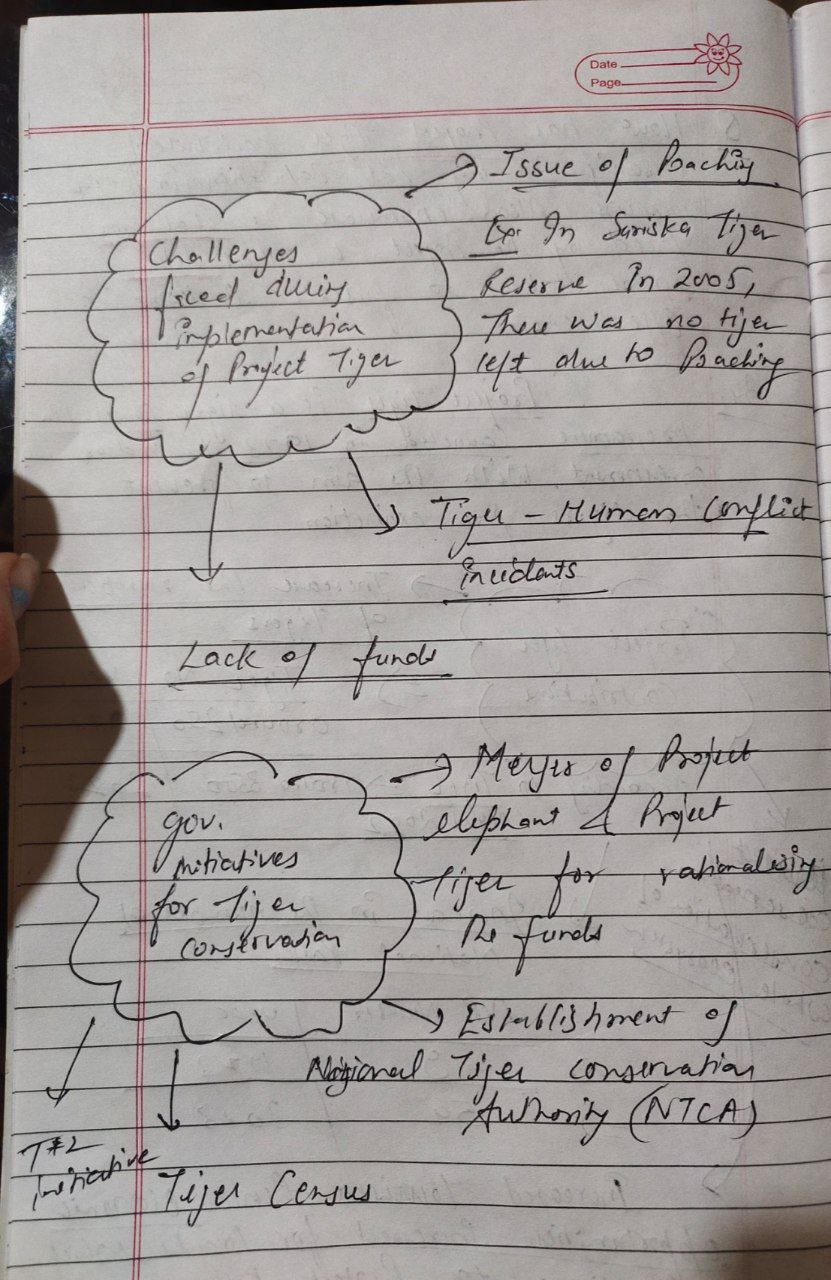 Date
Page
Issue of Poaching
Challenges
faced during
implementation
of Project Tiger
Ex: In Sariska Tiger
Reserve in 2005,
There was no tiger
left due to Poaching
Tiger - Human Conflict
incidents
Lack of funds
Gov.
initiatives
for Tiger
conservation
Merger of Project
elephant & Project
Tiger for rationalising
the funds
Establishment of
National Tiger conservation
Authority (NTCA)
initiative
Tiger Census